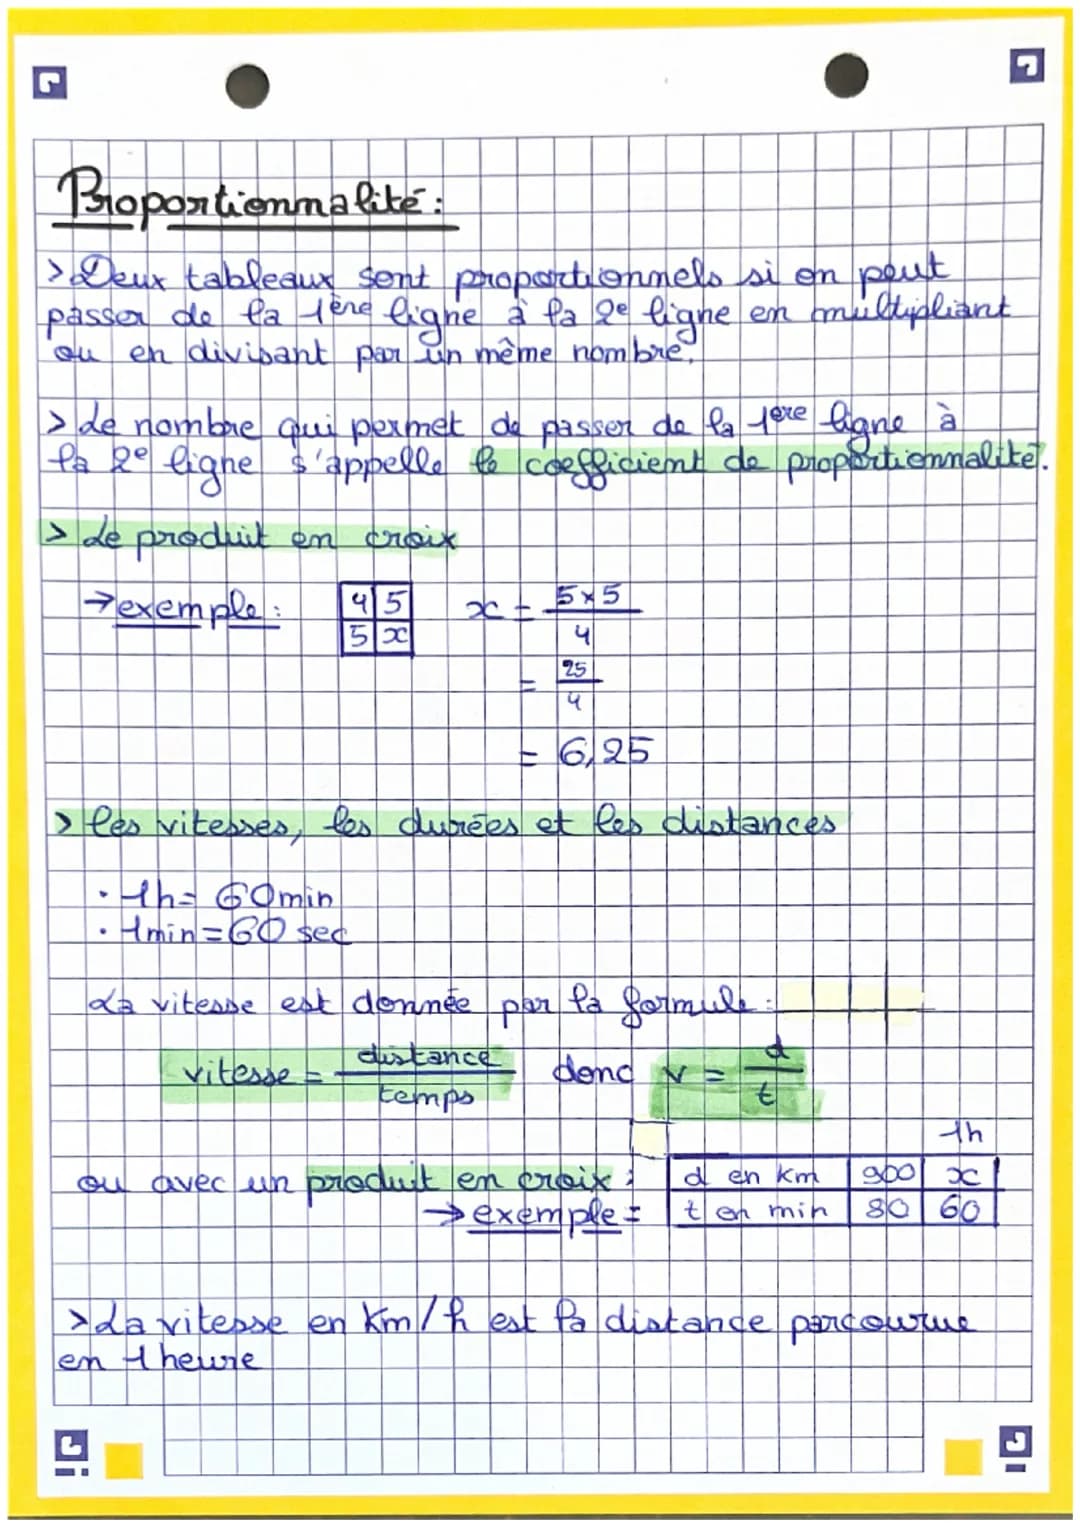 Proportionnalité :
> Deux tableaux sont proportionnels si on peut
passer de la 1ère ligne à la 2e ligne en multipliant
ou en divisant par un même nombre.
> Le nombre qui permet de passer de la 1ere ligne à
la 2e ligne s'appelle le coefficient de proportionnalité.
> Le produit en croix
→ exemple : 4 5 x = 5×5/4
5 x
= 25/4
= 6,25
> les vitesses, les durées et les distances
• 1h = 60min
• 1min = 60 sec
La vitesse est donnée par la formule :
vitesse = distance/temps donc v = d/t
1h
ou avec un produit en croix : d en km 900 x
→ exemple = t en min 80 60
> La vitesse en Km/h est la distance parcourue
en 1 heure